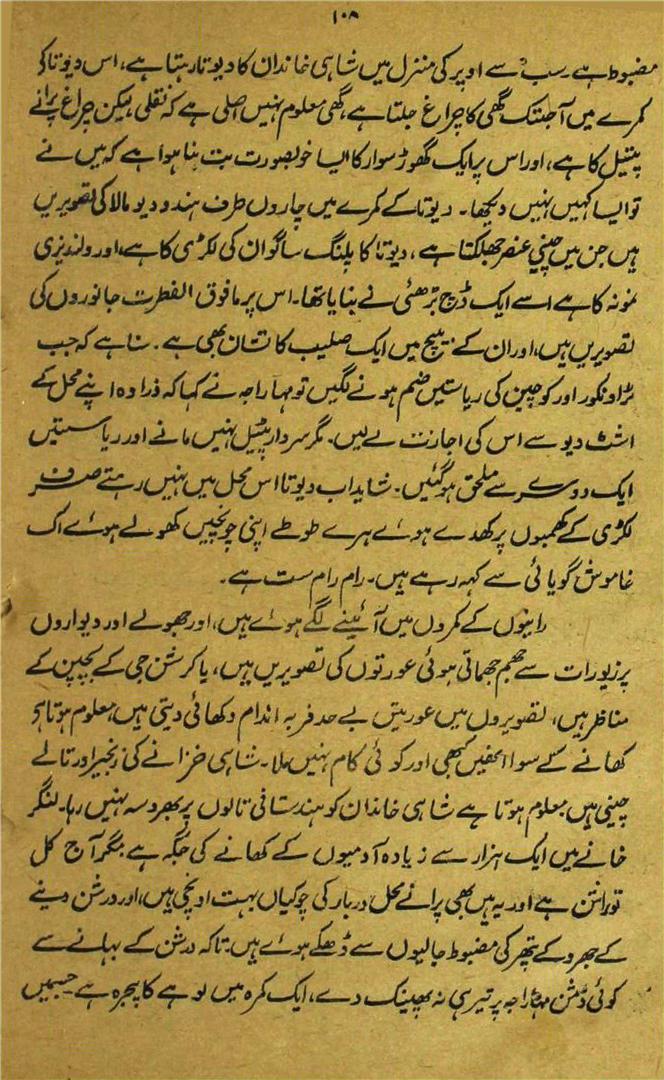 ۱۰۸
مضبوط ہے۔ سب سے اوپر کی منزل میں شاہی خاندان کا دیوتا رہتا ہے، اس دیوتا کی
کمرے میں آجتک گھی کا چراغ جلتا ہے، گھی معلوم نہیں اصلی ہے کہ نقلی، لیکن چراغ پرانے
پیتل کا ہے، اور اس پر ایک گھوڑ سوار کا ایسا خوبصورت بت بنا ہوا ہے کہ میں نے
تو ایسا کہیں نہیں دیکھا۔ دیوتا کے کمرے میں چاروں طرف ہندو دیو مالا کی تصویریں
ہیں جن میں چینی عنصر جھلکتا ہے، دیوتا کا پلنگ ساگوان کی لکڑی کا ہے، اور ولندیزی
نمونہ کا ہے اسے ایک ڈچ بڑھئی نے بنایا تھا۔ اس پر مافوق الفطرت جانوروں کی
تصویریں ہیں، اور ان کے بیچ میں ایک صلیب کا نشان بھی ہے۔ سنا ہے کہ جب
ٹراونکور اور کوچین کی ریاستیں ضم ہونے لگیں تو مہاراجہ نے کہا کہ ذرا وہ اپنے محل کے
اشٹ دیو سے اس کی اجازت لے لیں۔ مگر سردار پٹیل نہیں مانے اور ریاستیں
ایک دوسرے سے ملحق ہو گئیں۔ شاید اب دیوتا اس محل میں نہیں رہتے صرف
لکڑی کے کھمبوں پر کھدے ہوئے ہرے طوطے اپنی چونچیں کھولے ہوئے اک
خاموش گویائی سے کہہ رہے ہیں۔ رام رام ست ہے۔
رانیوں کے کمروں میں آئینے لگے ہوئے ہیں، اور جھولے اور دیواروں
پر زیورات سے جھم جھماتی ہوئی عورتوں کی تصویریں ہیں، یا کرشن جی کے بچپن کے
مناظر ہیں، تصویروں میں عورتیں بے حد فربہ اندام دکھائی دیتی ہیں، معلوم ہوتا ہے
کھانے کے سوا انھیں کبھی اور کوئی کام نہیں ملا۔ شاہی خزانے کی زنجیر اور تالے
چینی ہیں، معلوم ہوتا ہے شاہی خاندان کو ہندستانی تالوں پر بھروسہ نہیں رہا۔ لنگر
خانے میں ایک ہزار سے زیادہ آدمیوں کے کھانے کی جگہ ہے، مگر آج کل
تو راشن ہے اور یہ ہیں بھی پرانے محل دربار کی چوکیاں بہت اونچی ہیں، اور درشن دینے
کے جھروکے پتھر کی مضبوط جالیوں سے ڈھکے ہوئے ہیں۔ تاکہ درشن کے بہانے سے
کوئی دشمن مہاراجہ پر تیر ہی نہ پھینک دے، ایک کمرہ میں لوہے کا پنجرہ ہے جسمیں